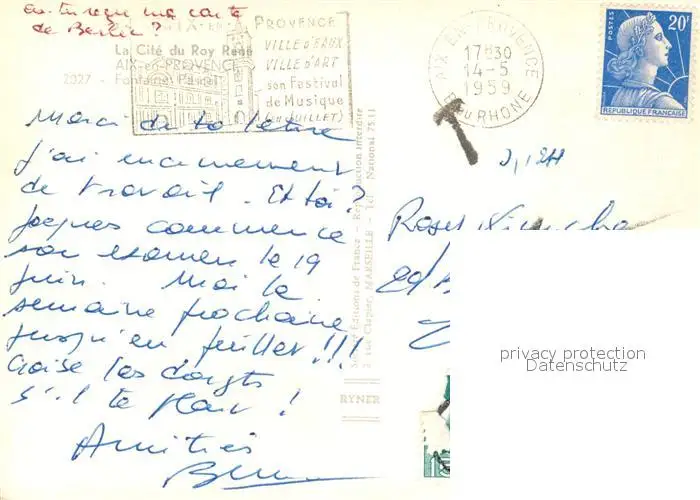 as-tu reçu ma carte
de Berlin?
PROVENCE
VILLE D'EAUX
VILLE D'ART
son Festival
de Musique
(JUILLET)
La Cité du Roy René
AIX-en-PROVENCE
2027 - Fontaine Pascal
AIX-EN-PROVENCE
17H30
14-5
1959
B. DU RHONE
POSTES
20F
REPUBLIQUE FRANÇAISE
Merci de ta lettre
j'ai énormément
de travail. Et toi?
Jacques commence
son examen le 19
juin. Moi la
semaine prochaine
jusqu'en juillet!!!
Croise les doigts
s'il te plaît!
Amitiés
Editions de France - Reproduction interdite
2 rue Clapier, MARSEILLE - Tél. National 75.11
RYNER
Roser
privacy protection
Datenschutz